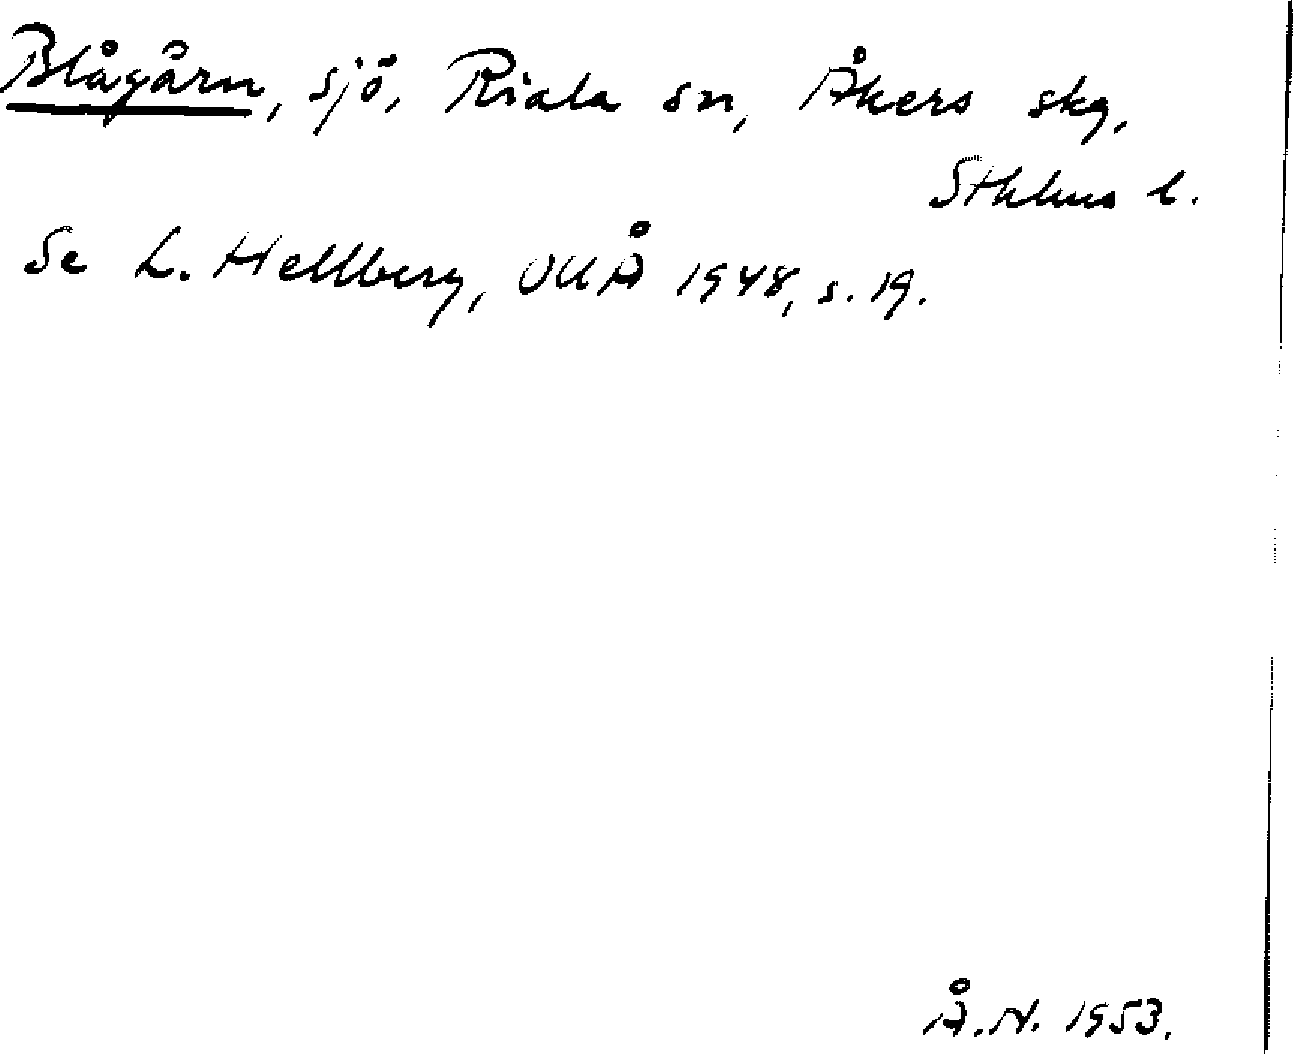 Blågårn, sjö, Riala sn, Åkers skg,
Sthlms l.
Se L. Hellberg, UUÅ 1948, s. 19.
Å.N. 1953.